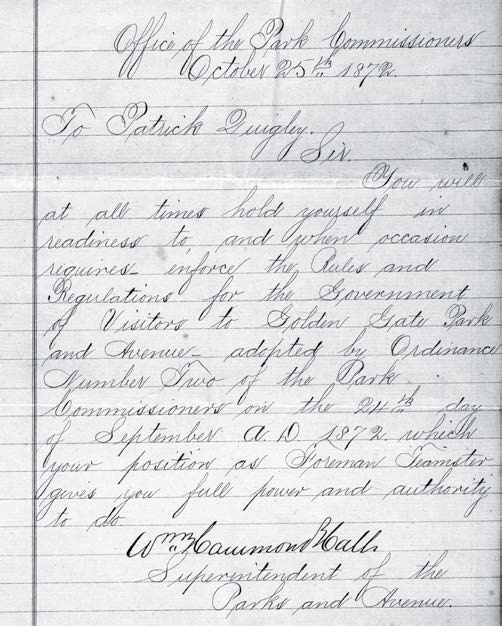 Office of the Park Commissioners
October 25th 1872.
To Patrick Quigley.
Sir.
You will
at all times hold yourself in
readiness to, and when occasion
requires– enforce the Rules and
Regulations for the Government
of Visitors to Golden Gate Park
and Avenue– adopted by Ordinance
Number Two of the Park
Commissioners on the 24th day
of September A.D. 1872. which
your position as Foreman Teamster
gives you full power and authority
to do.
Wm Hammond Hall
Superintendent of the
Parks and Avenue.